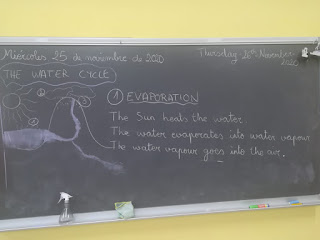 Miércoles 25 de noviembre de 2020
Thursday 26th November 2020
THE WATER CYCLE
1 EVAPORATION
The Sun heats the water.
The water evaporates into water vapour
The water vapour goes into the air.